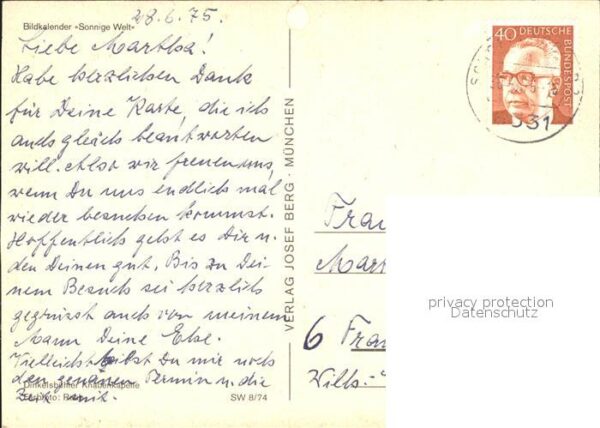 28.6.75.
Bildkalender »Sonnige Welt«
Liebe Martha!
Habe herzlichen Dank
für Deine Karte, die ich
auch gleich beantworten
will. Also wir freuen uns,
wenn Du uns endlich mal
wieder besuchen kommst.
Hoffentlich geht es Dir u.
den Deinen gut. Bis zu Dei-
nem Besuch sei herzlich
gegrüsst auch von meinem
Mann Deine Else.
Vielleicht teilst Du mir noch
den genauen Termin u. die
Zeit mit.
Dinkelsbühler Knabenkapelle
SW 8/74
VERLAG JOSEF BERG · MÜNCHEN
40 DEUTSCHE BUNDESPOST
Frau
6 Fran
privacy protection
Datenschutz